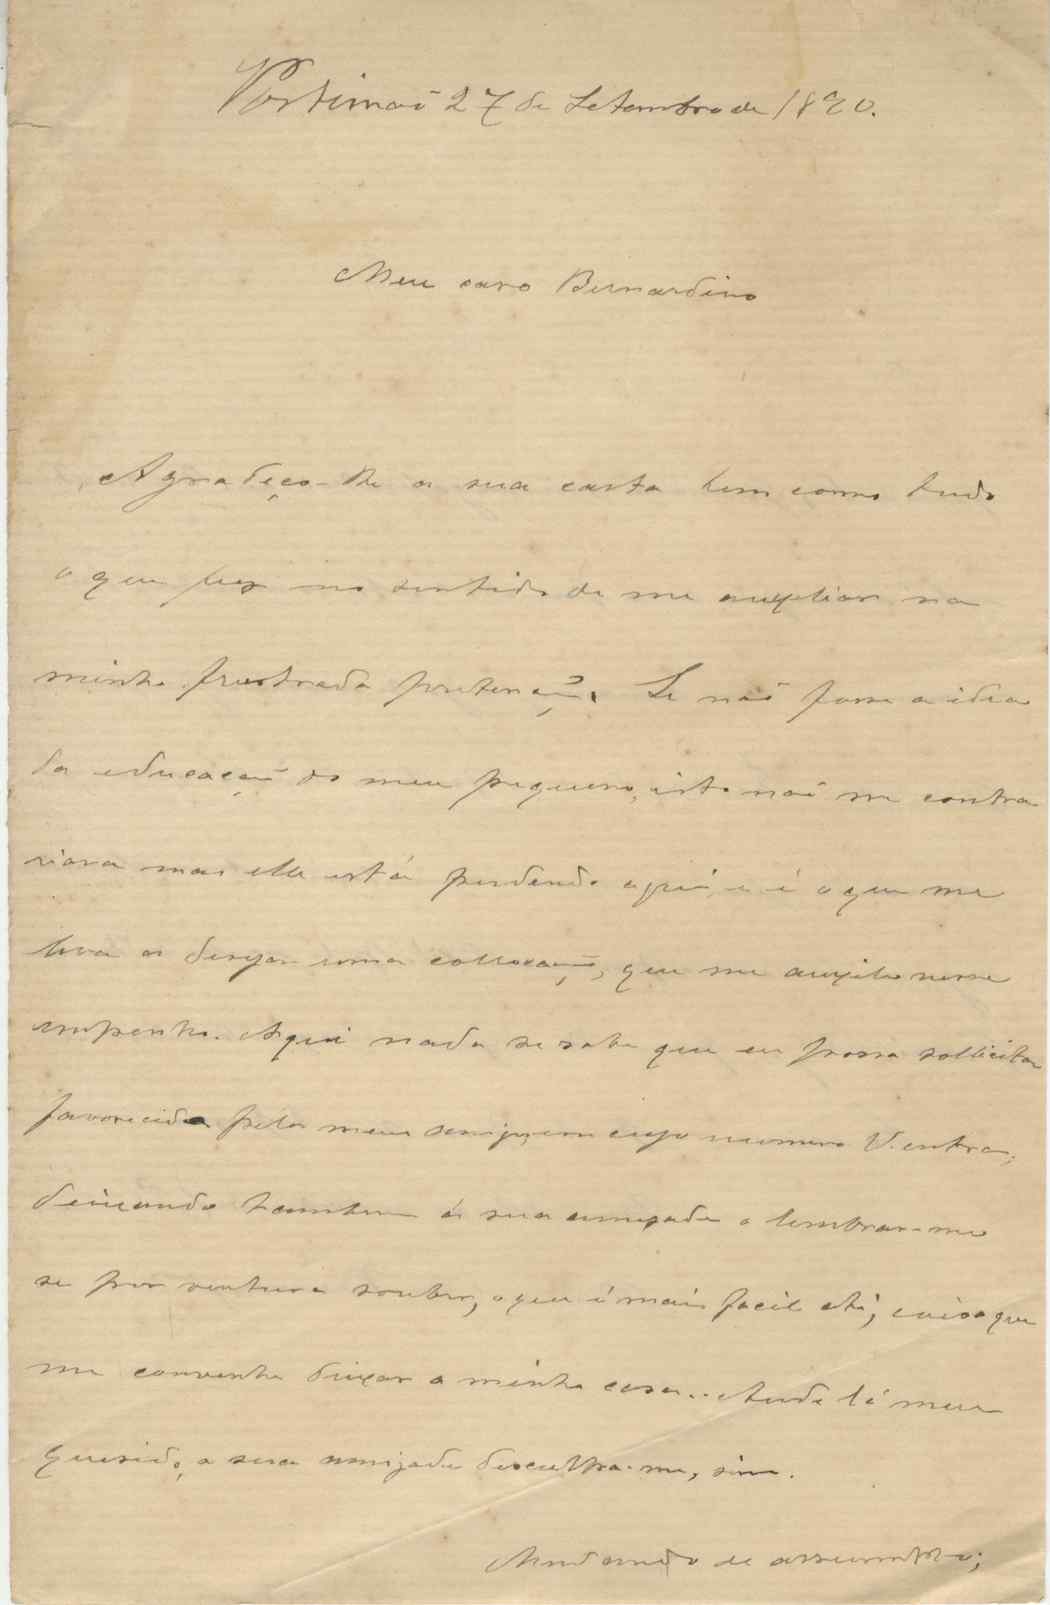 Portimaõ 27 de Setembro de 1890.
Meu caro Bernardino
Agradeço-lhe a sua carta bem como tudo
o que fez no sentido de me auxiliar na
minha frustrada pretenção. Se naõ fosse a idea
da educaçaõ do meu pequeno, isto naõ me contra
riava mas elle está perdendo aqui, e é o que me
leva a desejar uma collocaçaõ, que me auxilie nesse
empenho. Aqui nada se sabe que eu possa sollicitar
favorecido pelos meus amigos, em cujo numero V. entra,
deixando tambem á sua amizade o lembrar-me
se por ventura souber, o que é mais facil ahi, coisa que
me convenha deixar a minha casa. Ande lá meu
querido, a sua amizade descubra-me, sim.
Mudando de assumpto;